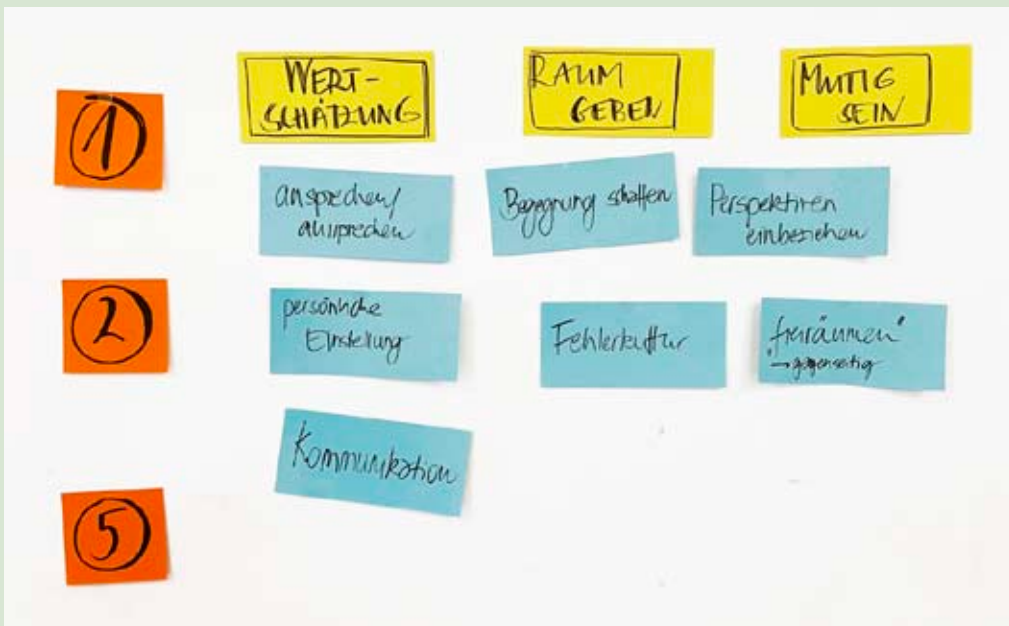 1
WERT-
SCHÄTZUNG
RAUM
GEBEN
MUTIG
SEIN
ansprechen/
aussprechen
Begegnung schaffen
Perspektiven
einbeziehen
2
persönliche
Einstellung
Fehlerkultur
"freiräumen"
→ gegenseitig
Kommunikation
5